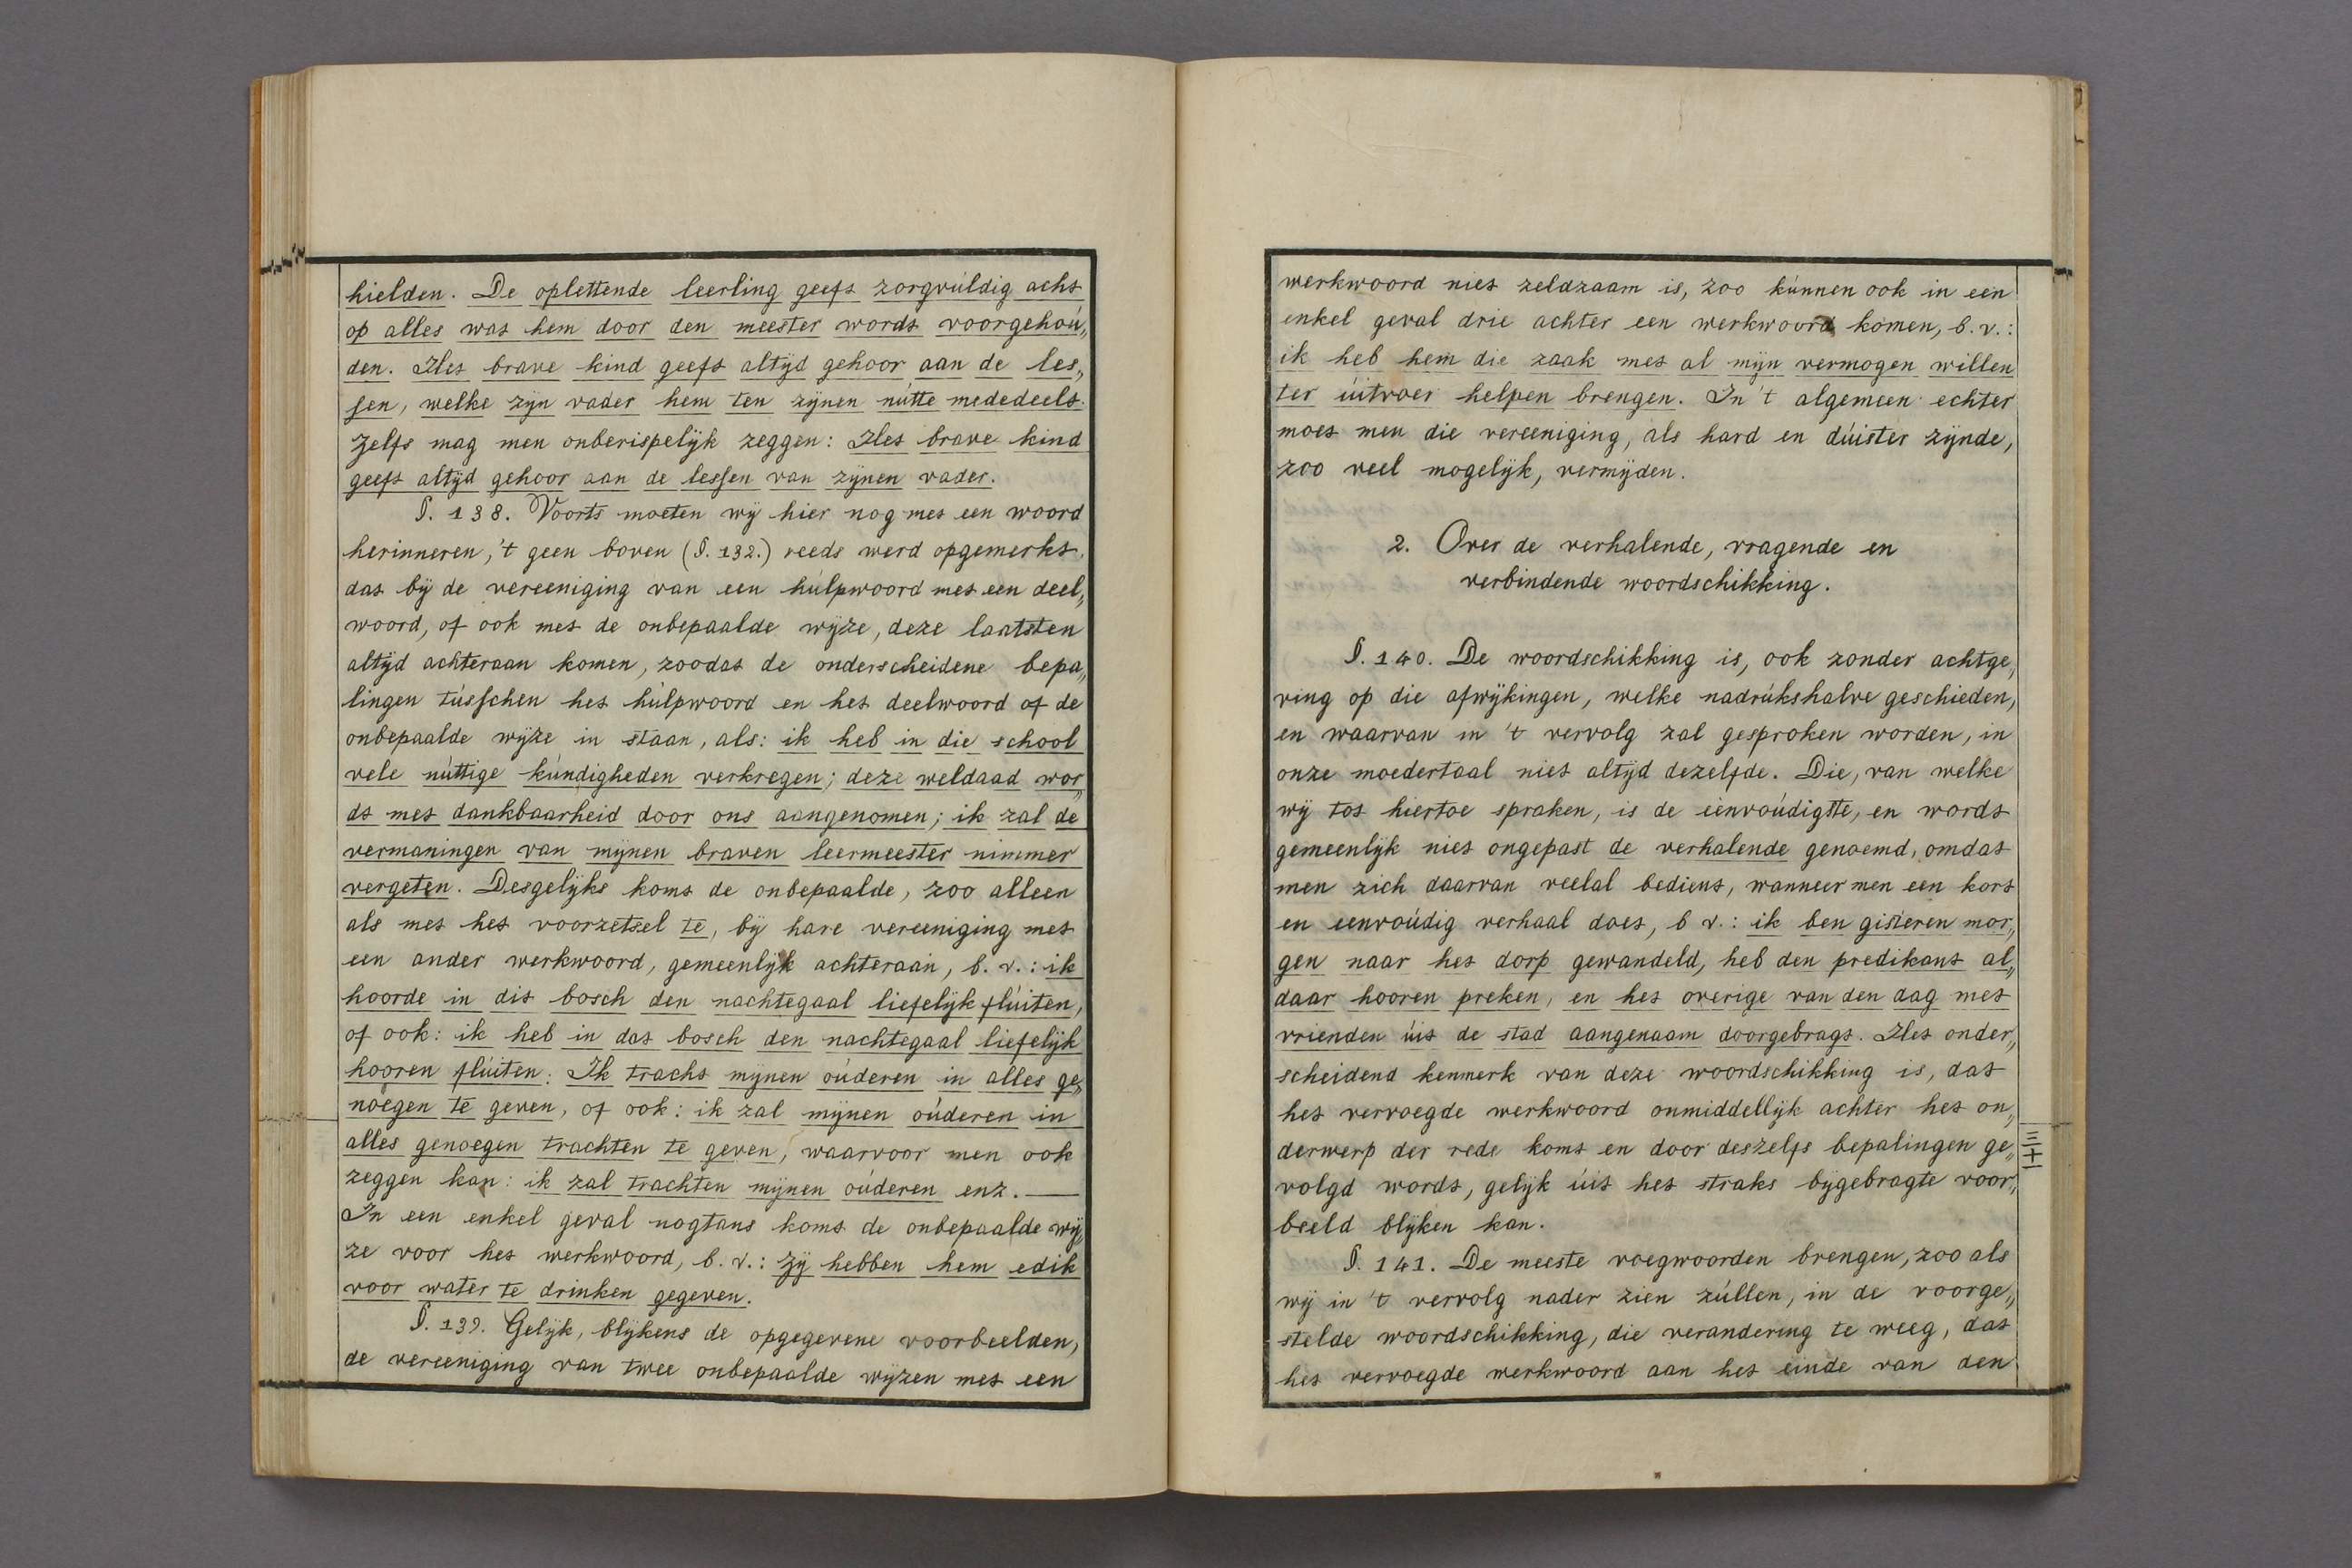 hielden. De oplettende leerling geeft zorgvúldig acht
op alles wat hem door den meester wordt voorgehoú„
den. Het brave kind geeft altijd gehoor aan de les„
sen, welke zijn vader hem ten zijnen nútte mededeelt.
Zelfs mag men onberispelijk zeggen: Het brave kind
geeft altijd gehoor aan de lessen van zijnen vader.
§. 138. Voorts moeten wij hier nog met een woord
herinneren, 't geen boven (§. 132.) reeds werd opgemerkt,
dat bij de vereeniging van een húlpwoord met een deel„
woord, of ook met de onbepaalde wijze, deze laatsten
altijd achteraan komen, zoodat de onderscheidene bepa„
lingen tússchen het húlpwoord en het deelwoord of de
onbepaalde wijze in staan, als: ik heb in die school
vele núttige kúndigheden verkregen; deze weldaad wor„
dt met dankbaarheid door ons aangenomen; ik zal de
vermaningen van mijnen braven leermeester nimmer
vergeten. Desgelijks komt de onbepaalde, zoo alleen
als met het voorzetsel te, bij hare vereeniging met
een ander werkwoord, gemeenlijk achteraan, b. v.: ik
hoorde in dit bosch den nachtegaal liefelijk flúiten,
of ook: ik heb in dat bosch den nachtegaal liefelijk
hooren flúiten. Ik tracht mijnen oúderen in alles ge„
noegen te geven, of ook: ik zal mijnen oúderen in
alles genoegen trachten te geven, waarvoor men ook
zeggen kan: ik zal trachten mijnen oúderen enz. —
In een enkel geval nogtans komt de onbepaalde wij„
ze voor het werkwoord, b. v.: Zij hebben hem edik
voor water te drinken gegeven.
§. 139. Gelijk, blijkens de opgegevene voorbeelden,
de vereeniging van twee onbepaalde wijzen met een
werkwoord niet zeldzaam is, zoo kúnnen ook in een
enkel geval drie achter een werkwoord komen, b. v.:
ik heb hem die zaak met al mijn vermogen willen
ter úitvoer helpen brengen. In 't algemeen echter
moet men die vereeniging, als hard en dúister zijnde,
zoo veel mogelijk, vermijden.
2. Over de verhalende, vragende en
verbindende woordschikking.
§. 140. De woordschikking is, ook zonder achtge„
ving op die afwijkingen, welke nadrúkshalve geschieden,
en waarvan in 't vervolg zal gesproken worden, in
onze moedertaal niet altijd dezelfde. Die, van welke
wij tot hiertoe spraken, is de eenvoúdigste, en wordt
gemeenlijk niet ongepast de verhalende genoemd, omdat
men zich daarvan veelal bedient, wanneer men een kort
en eenvoúdig verhaal doet, b v.: ik ben gisteren mor„
gen naar het dorp gewandeld, heb den predikant al„
daar hooren preken, en het overige van den dag met
vrienden úit de stad aangenaam doorgebragt. Het onder„
scheidend kenmerk van deze woordschikking is, dat
het vervoegde werkwoord onmiddellijk achter het on„
derwerp der rede komt en door deszelfs bepalingen ge„
volgd wordt, gelijk úit het straks bijgebragte voor„
beeld blijken kan.
§. 141. De meeste voegwoorden brengen, zoo als
wij in 't vervolg nader zien zúllen, in de voorge„
stelde woordschikking, die verandering te weeg, dat
het vervoegde werkwoord aan het einde van den
三十一